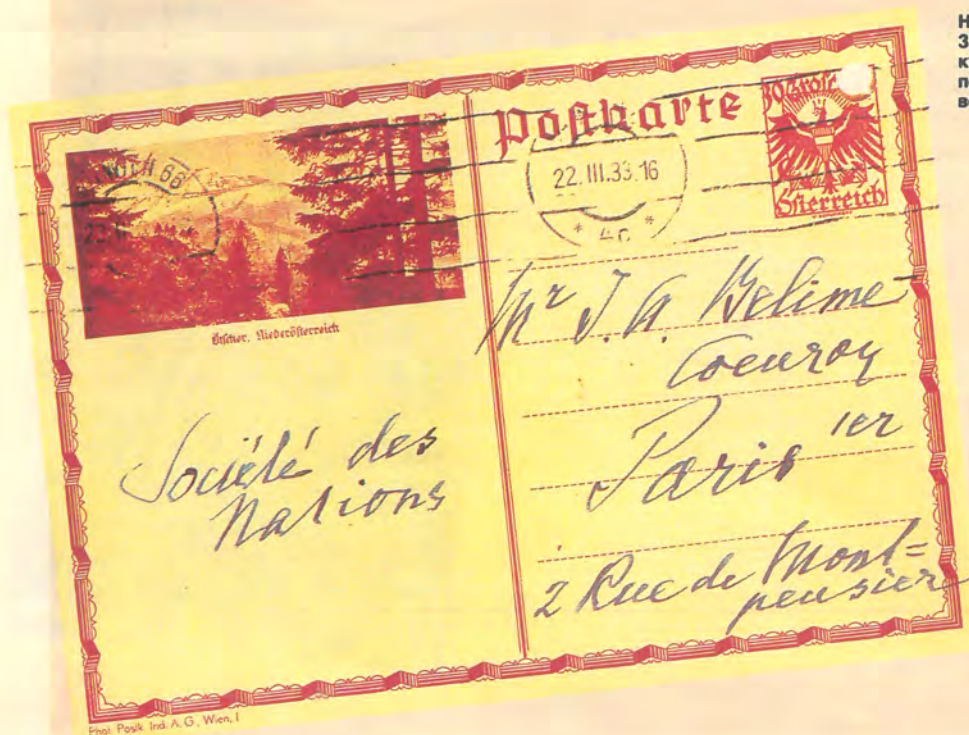 Postkarte
30 Grosch
Österreich
22.III.33.16
Ötscher, Niederösterreich
Société des
Nations
Mr J. A. Belime
Coeuroy
Paris 1er
2 Rue de Mont=
pensier
Phot. Postk. Ind. A. G., Wien, I